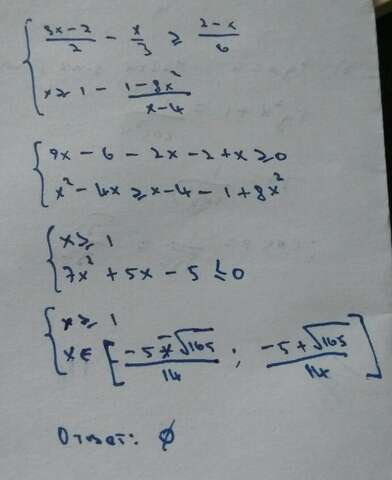 { (3x-2)/2 - x/3 ≥ (2-x)/6
x ≥ 1 - (1-8x²)/(x-4)
{ 9x - 6 - 2x - 2 + x ≥ 0
x² - 4x ≥ x - 4 - 1 + 8x²
{ x ≥ 1
7x² + 5x - 5 ≤ 0
{ x ≥ 1
x ∈ [(-5-√165)/14 ; (-5+√165)/14]
Ответ: ∅